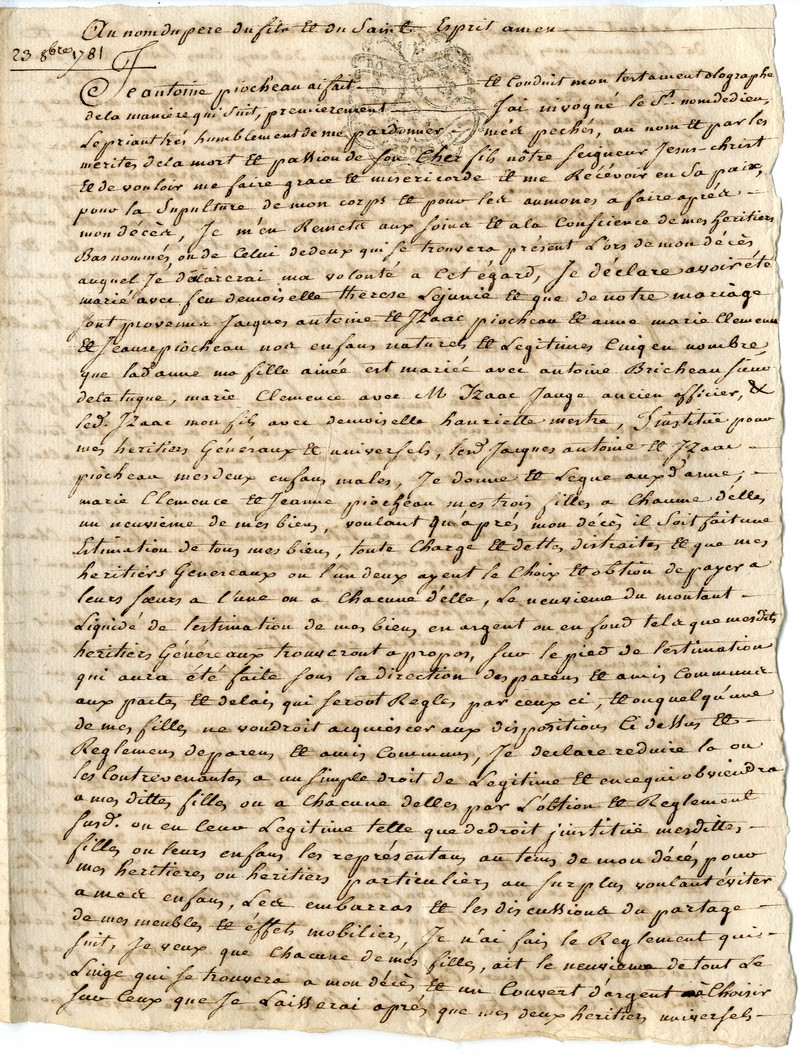 Au nom du pere du fils et du Saint Esprit amen
23 8bre 1781
Je antoine piocheau ai fait et conduit mon testament olographe
de la maniere qui suit, premierement J'ai invoqué le St. nom de dieu,
Le priant trés humblement de me pardonner mes pechés, au nom et par les
merites de la mort et passion de son Cher fils nôtre seigneur Jesus-christ
et de vouloir me faire grace et misericorde et me Récévoir en Sa paix,
pour la Sepulture de mon corps et pour les aumones a faire aprés
mon décés, Je m'en Remets aux soins et a la Conscience de mes heritiers
Bas nommés, ou de Celui dedeux qui se trouvera présent Lors de mon décés
auquel Je déclarerai ma volonté a Cet égard, Je déclare avoir été
marié avec feu demoiselle therese Lejunie et que de notre mariage
sont provenus Jacques antoine et Izaac piocheau et anne marie Clemence
et Jeanne piocheau nos enfans naturels et Legitimes Cinq en nombre
que lad. anne ma fille ainée est mariée avec antoine Bricheau sieur
delatuque, marie Clemence avec M Izaac Jauge ancien officier, &
led. Izaac mon fils avec demoiselle henriette mestre, J'institüe pour
mes heritiers Généraux et universels, lesd. Jacques antoine et Izaac
piocheau mes deux enfans males, Je donne et Legue auxd. anne,
marie Clemence et Jeanne piocheau mes trois filles a Chacune d'elles
un neuvieme de mes biens, voulant qu'aprés mon décés il Soit fait une
Estimation de tous mes biens, toute Charge et dettes distraites et que mes
heritiers Genereaux ou l'un deux ayent le Choix et obtion de payer a
leurs sœurs a l'une ou a Chacune d'elle, Le neuvieme du montant
Liquidé de lestimation de mes biens en argent ou en fond tels que mesdits
heritiers Généreaux trouveront apropos, sur le pied de lestimation
qui aura été faite sous la direction des parens et amis Communs
aux pactes et delais qui seront Regles par ceux ci, et ou quelqu'une
de mes filles ne voudroit acquiescer aux dispositions Ci dessus et
Reglemens de parens et amis Communs, Je declare reduire la ou
les Contrevenantes a un simple droit de Legitime et en ce qui obviendra
a mes dittes filles ou a Chacune delles par L'obtion et Reglement
susd. ou en leur Legitime telle que de droit j'institüe mesdittes
filles ou leurs enfans les représentans au tems de mon décés pour
mes heritieres ou heritiers particuliers au surplus voulant éviter
a mes enfans, Les embarras et les discussions du partage
de mes meubles et éffets mobiliers, Je n'ai fais le Reglement qui
suit, Je veux que Chacune de mes filles, ait le neuvieme de tout Le
Linge qui se trouvera a mon décés et un Couvert d'argent a Choisir
sur Ceux que Je Laisserai aprés que mes deux heritiers universels